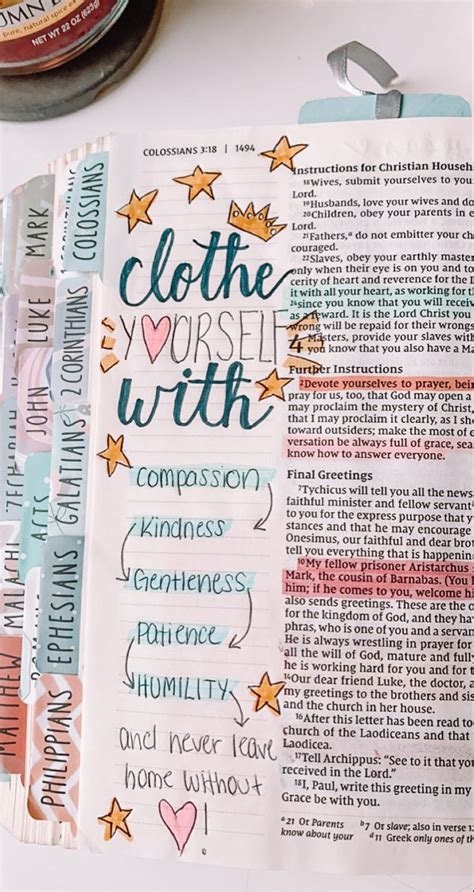 UMN
pure, natural spice ea
NET WT 22 OZ (623g)
COLOSSIANS 3:18 | 1494
COLOSSIANS
MARK
LUKE
2 CORINTHIANS
JOHN
GALATIANS
ACTS
MALACHI
EPHESIANS
MATTHEW
PHILIPPIANS
clothe
YOURSELF
with
compassion
Kindness
Gentleness
Patience
HUMILITY
and never leave
home without
!
Instructions for Christian Househ
18Wives, submit yourselves to you
Lord.
19Husbands, love your wives and do
20Children, obey your parents in e
Lord.
21Fathers,a do not embitter your ch
couraged.
22Slaves, obey your earthly master
only when their eye is on you and to
cerity of heart and reverence for the L
it with all your heart, as working for t
24since you know that you will receiv
as a reward. It is the Lord Christ you
wrong will be repaid for their wrong
4 Masters, provide your slaves with
you know that you also have a M
Further Instructions
2Devote yourselves to prayer, bein
pray for us, too, that God may open a
may proclaim the mystery of Christ
that I may proclaim it clearly, as I sh
toward outsiders; make the most of e
versation be always full of grace, sea
know how to answer everyone.
Final Greetings
7Tychicus will tell you all the news
faithful minister and fellow servant
to you for the express purpose that y
stances and that he may encourage
Onesimus, our faithful and dear brot
tell you everything that is happenin
10My fellow prisoner Aristarchus
Mark, the cousin of Barnabas. (You
him; if he comes to you, welcome hi
also sends greetings. These are the o
for the kingdom of God, and they ha
phras, who is one of you and a serva
He is always wrestling in prayer for
all the will of God, mature and full
he is working hard for you and for t
14Our dear friend Luke, the doctor, a
my greetings to the brothers and sis
and the church in her house.
16After this letter has been read to
church of the Laodiceans and that
Laodicea.
17Tell Archippus: "See to it that yo
received in the Lord."
18I, Paul, write this greeting in my
Grace be with you.
a21 Or Parents b7 Or slave; also in verse 12
know about your d11 Greek only ones of th